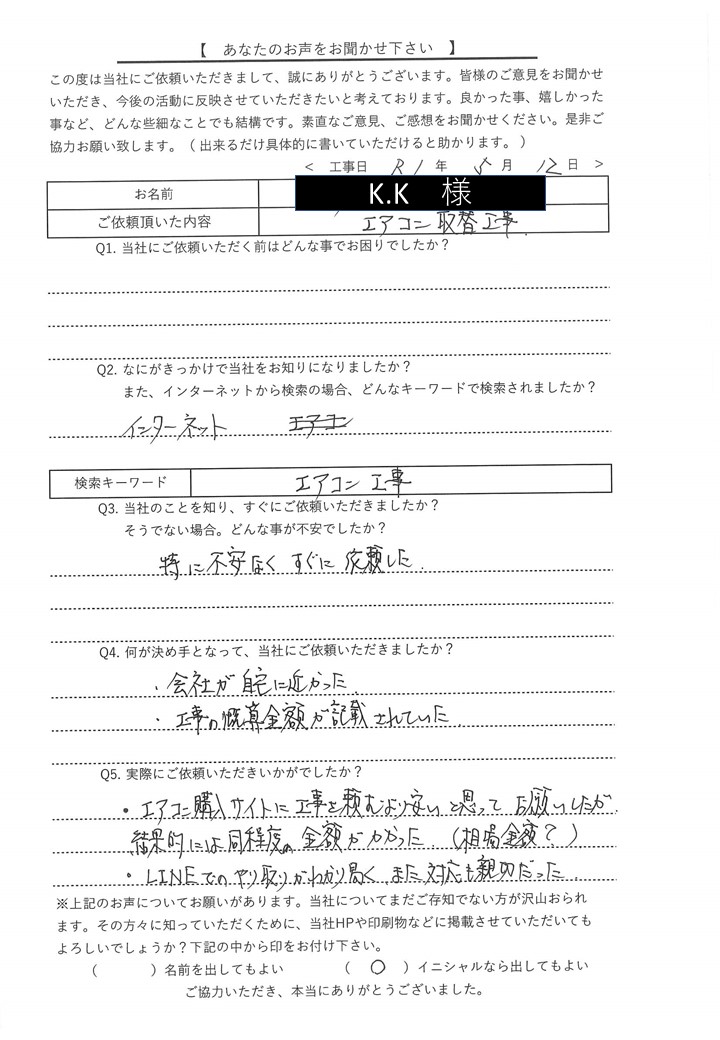 【　あなたのお声をお聞かせ下さい　】
この度は当社にご依頼いただきまして、誠にありがとうございます。皆様のご意見をお聞かせ
いただき、今後の活動に反映させていただきたいと考えております。良かった事、嬉しかった
事など、どんな些細なことでも結構です。素直なご意見、ご感想をお聞かせください。是非ご
協力お願い致します。（ 出来るだけ具体的に書いていただけると助かります。）
＜　工事日　R1 年 5 月 12 日　＞
お名前　K.K　様
ご依頼頂いた内容　エアコン取替工事.
Q1. 当社にご依頼いただく前はどんな事でお困りでしたか？
Q2. なにがきっかけで当社をお知りになりましたか？
また、インターネットから検索の場合、どんなキーワードで検索されましたか？
インターネット　エアコン
検索キーワード　エアコン 工事
Q3. 当社のことを知り、すぐにご依頼いただきましたか？
そうでない場合。どんな事が不安でしたか？
特に不安なく すぐに 依頼した.
Q4. 何が決め手となって、当社にご依頼いただきましたか？
・会社が自宅に近かった.
・工事の概算金額が記載されていた.
Q5. 実際にご依頼いただきいかがでしたか？
・エアコン購入サイトに工事を頼むより安いと思ってお願いしたが.
結果的には同程度の金額がかかった.（相場金額？）
・LINEでのやり取りがわかり易く、また対応も親切だった.
※上記のお声についてお願いがあります。当社についてまだご存知でない方が沢山おられ
ます。その方々に知っていただくために、当社HPや印刷物などに掲載させていただいても
よろしいでしょうか？下記の中から印をお付け下さい。
（　　　）名前を出してもよい　　（　○　）イニシャルなら出してもよい
ご協力いただき、本当にありがとうございました。